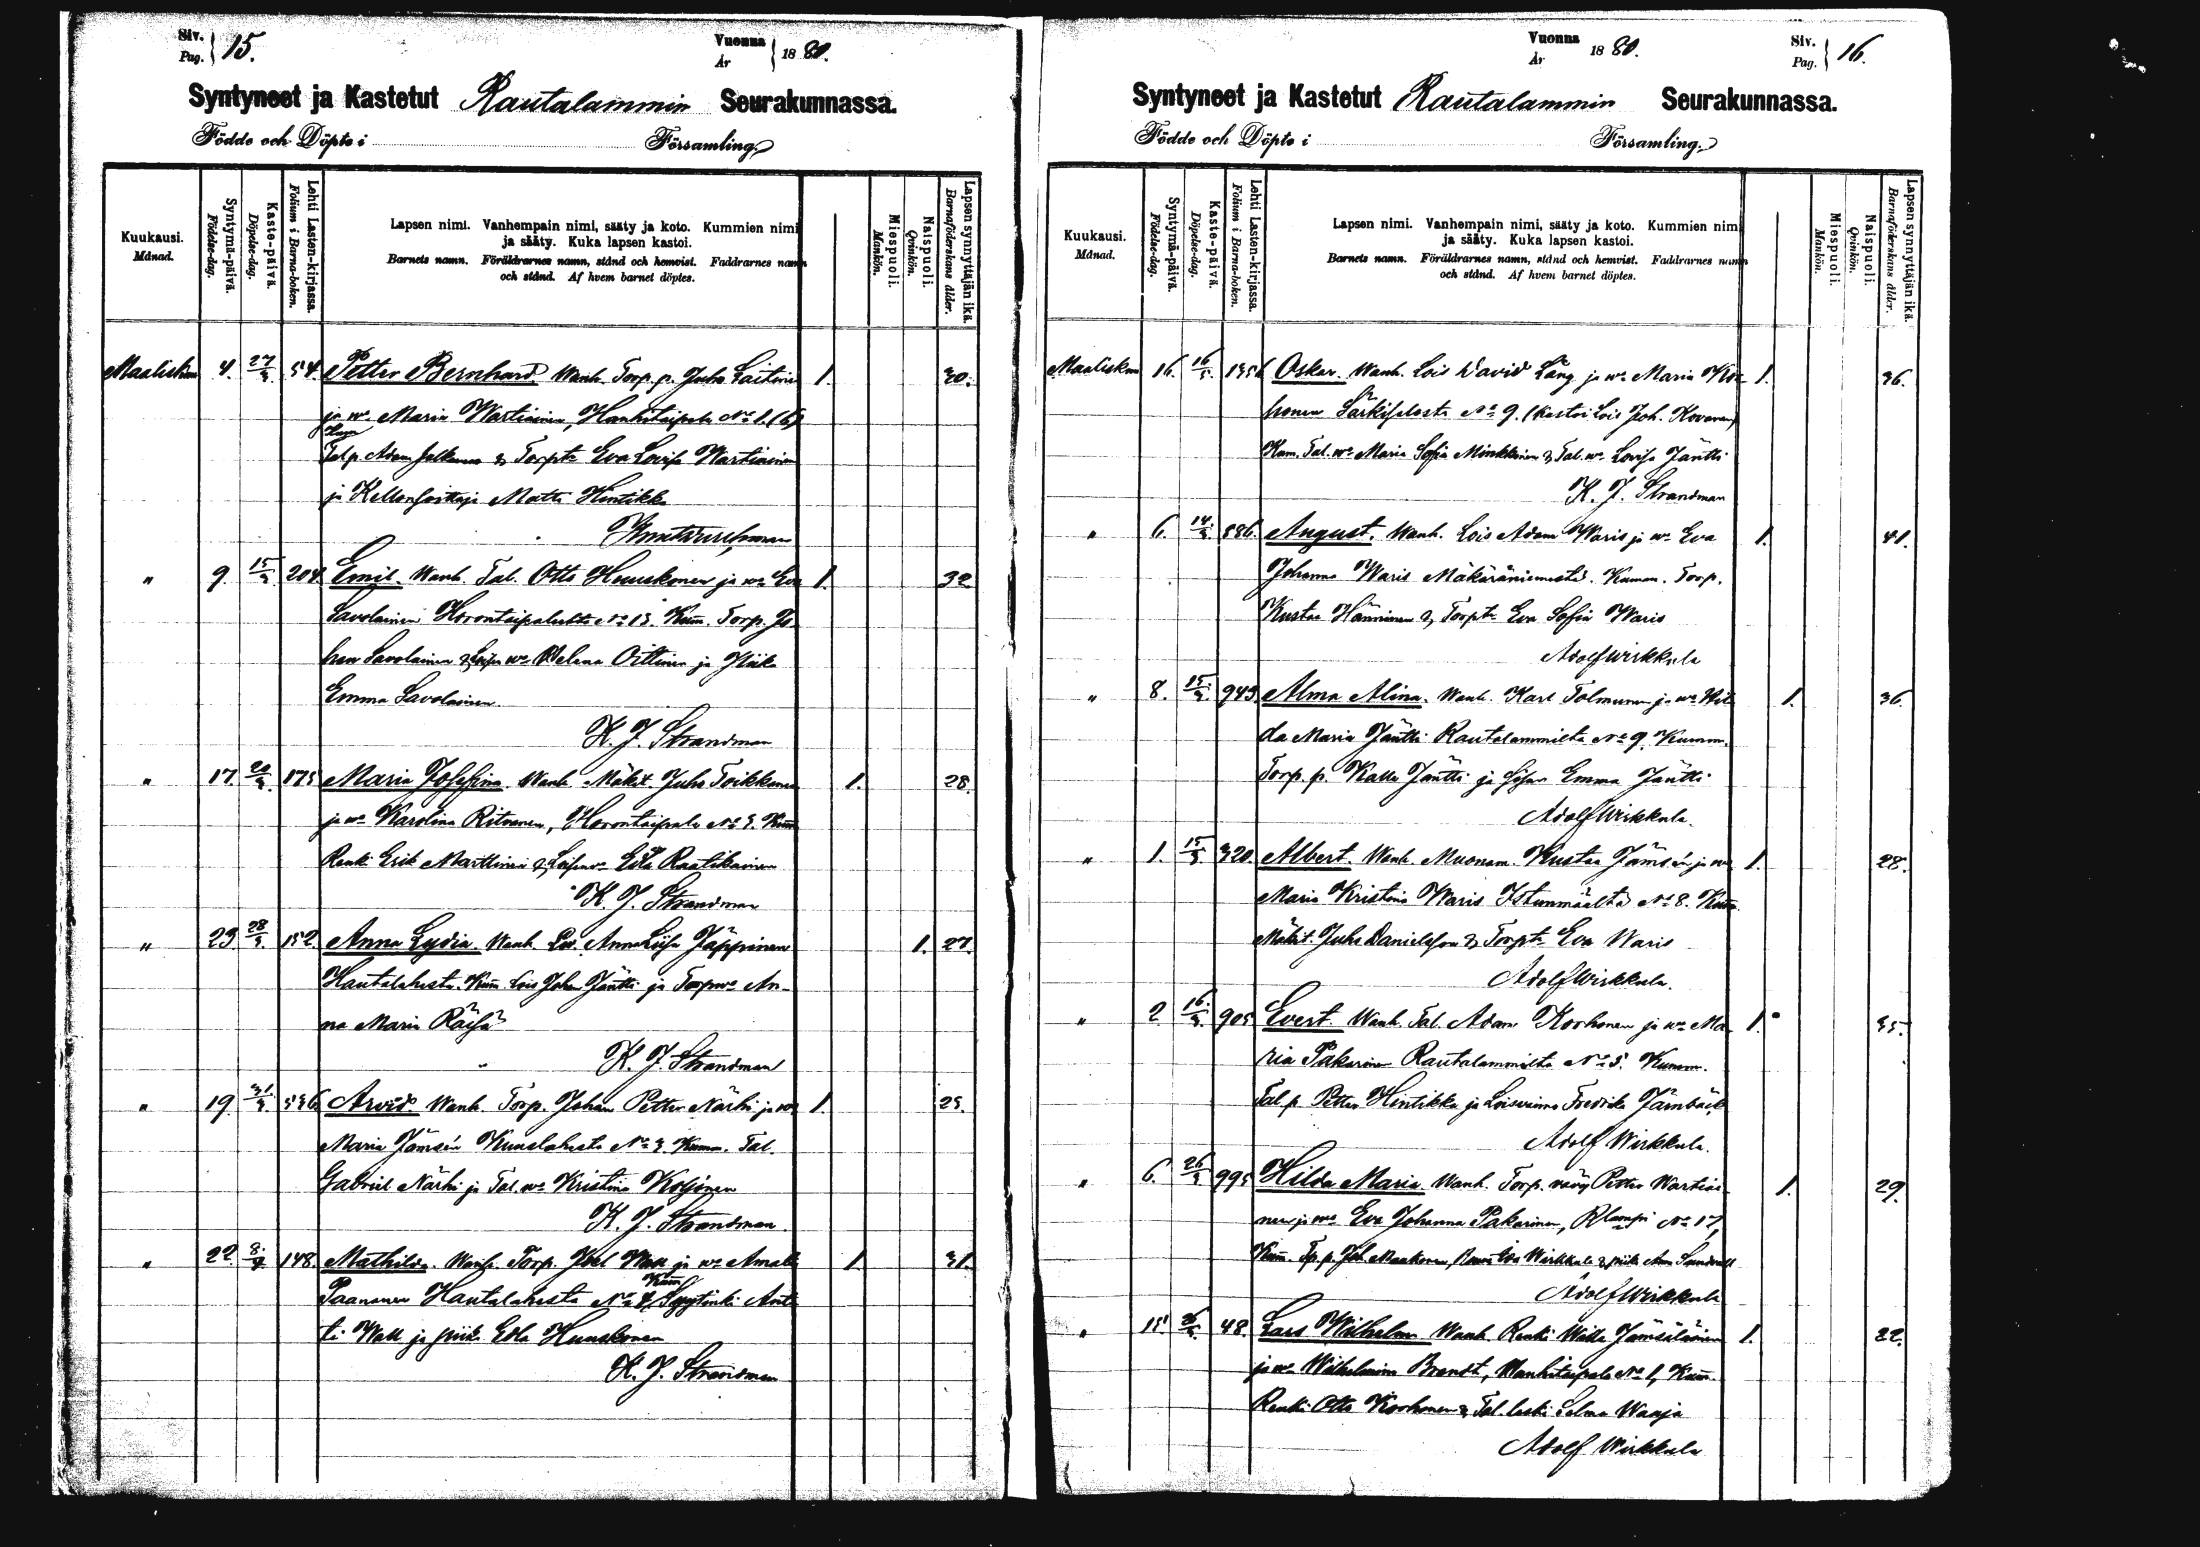 Siv.
Pag. 15.
Vuonna
År 1880.
Syntyneet ja Kastetut Rautalammin Seurakunnassa.
Födde och Döpte i Församling.
Kuukausi.
Månad.
Syntymä-päivä.
Födelse-dag.
Kaste-päivä.
Döpelse-dag.
Lehti Lasten-kirjassa.
Folium i Barna-boken.
Lapsen nimi. Vanhempain nimi, sääty ja koto. Kummien nimi
ja sääty. Kuka lapsen kastoi.
Barnets namn. Föräldrarnes namn, stånd och hemvist. Faddrarnes namn
och stånd. Af hvem barnet döptes.
Miespuoli.
Mankön.
Naispuoli.
Qvinkön.
Lapsen synnyttäjän ikä.
Barnaföderskans ålder.
Maalisk 4. 27/3 54. Petter Bernhard. Wanh. Torp. p. Juho Laitinen 1. 30.
ja wo Maria Wartiainen, Hanhitaipale No 1.
Kum
Tal p. Adam Jalkanen & Torp tr Eva Lovisa Wartiainen
ja Kellonsoittaja Matti Hintikka
" 9. 15/3 204. Emil. Wanh. Tal. Otto Huuskonen ja wo Eva 1. 32
Savolainen Horontaipaleelta No 13. Kum. Torp. Jo-
han Savolainen & wo Helena Oittinen ja Piika
Emma Savolainen
K. J. Strandman
" 17. 20/3 175 Maria Josefina. Wanh. Mäkit. Juho Toikkanen 1. 28.
ja wo Karolina Ritvanen, Horontaipale No 3. Kum
Renki Erik Marttinen & Loisen wo Edla Raatikainen
K. J. Strandman
" 23 28/3 152 Anna Lydia. Wanh. Anna Liisa Jäppinen 1. 27.
Hautalahesta. Kum. Lois Johan Jäntti ja Torp wo An-
na Maria Räisä
K. J. Strandman
" 19. 31/3 536 Arvid. Wanh. Torp. Johan Petter Närhi ja wo 1. 25.
Maria Jämsén Kuuslahesta No 3. Kumm. Tal.
Gabriel Närhi ja Tal. wo Kristina Koljonen
K. J. Strandman
" 22 8/4 148. Mathilda. Wanh. Torp. Joel Wall ja wo Amali 1. 31.
Kum
Paananen Hautalahesta No 4, Syytinki Ant-
ti Wall ja piika Edla Huuskonen
K. J. Strandman
Vuonna
År 1880.
Siv.
Pag. 16.
Syntyneet ja Kastetut Rautalammin Seurakunnassa.
Födde och Döpte i Församling.
Kuukausi.
Månad.
Syntymä-päivä.
Födelse-dag.
Kaste-päivä.
Döpelse-dag.
Lehti Lasten-kirjassa.
Folium i Barna-boken.
Lapsen nimi. Vanhempain nimi, sääty ja koto. Kummien nim
ja sääty. Kuka lapsen kastoi.
Barnets namn. Föräldrarnes namn, stånd och hemvist. Faddrarnes namn
och stånd. Af hvem barnet döptes.
Miespuoli.
Mankön.
Naispuoli.
Qvinkön.
Lapsen synnyttäjän ikä.
Barnaföderskans ålder.
Maalisk 16. 16/3 Oskar. Wanh. Lois David Lång ja wo Maria Kor- 1. 36.
honen Särkisalosta No 9. (kastoi Lois Joh. Kovanen)
Kum. Tal. wo Maria Sofia Minkkinen & Tal. wo Lovisa Jäntti
K. J. Strandman
" 6. 14/3 886. August. Wanh. Lois Adam Waris ja wo Eva 1. 41.
Johanna Waris Mäkäräniemestä. Kumm. Torp.
Kustaa Hänninen & Torp tr Eva Sofia Waris
Adolf Wirkkula
" 8. 15/3 943. Alma Alina. Wanh. Karl Tolmunen ja wo Hil- 1. 36.
da Maria Jäntti Rautalammilta No 9. Kumm.
Torp. p. Kalle Jäntti ja Emma Jäntti
Adolf Wirkkula.
" 1. 15/3 320. Albert. Wanh. Muonam. Kustaa Jämsén ja wo 1. 28.
Maria Kristina Waris Istunmäeltä No 8. Kum.
Mäkit. Juho Danielson & Torp tr Eva Waris
Adolf Wirkkula.
" 2 16/3 905 Evert. Wanh. Tal. Adam Korhonen ja wo Ma- 1. 35.
ria Pakarinen Rautalammilta No 5. Kumm.
Tal p. Petter Hintikka ja Fredrika Järnbäck
Adolf Wirkkula.
" 6. 26/3 995 Hilda Maria. Wanh. Torp. vävy Petter Wartiai- 1. 29.
nen ja wo Eva Johanna Pakarinen, Rlampi No 17,
Kum. Tp. p. Joh. Maukonen, Wirkkula & piika Anna Sundvall
Adolf Wirkkula
" 15 26/3 48. Lars Wilhelm. Wanh. Renki Jämsäläinen 1. 22.
ja wo Wilhelmina Brandt, Hanhitaipale No 1, Kum.
Renki Otto Korhonen & Tal. leski Selma Wanja
Adolf Wirkkula